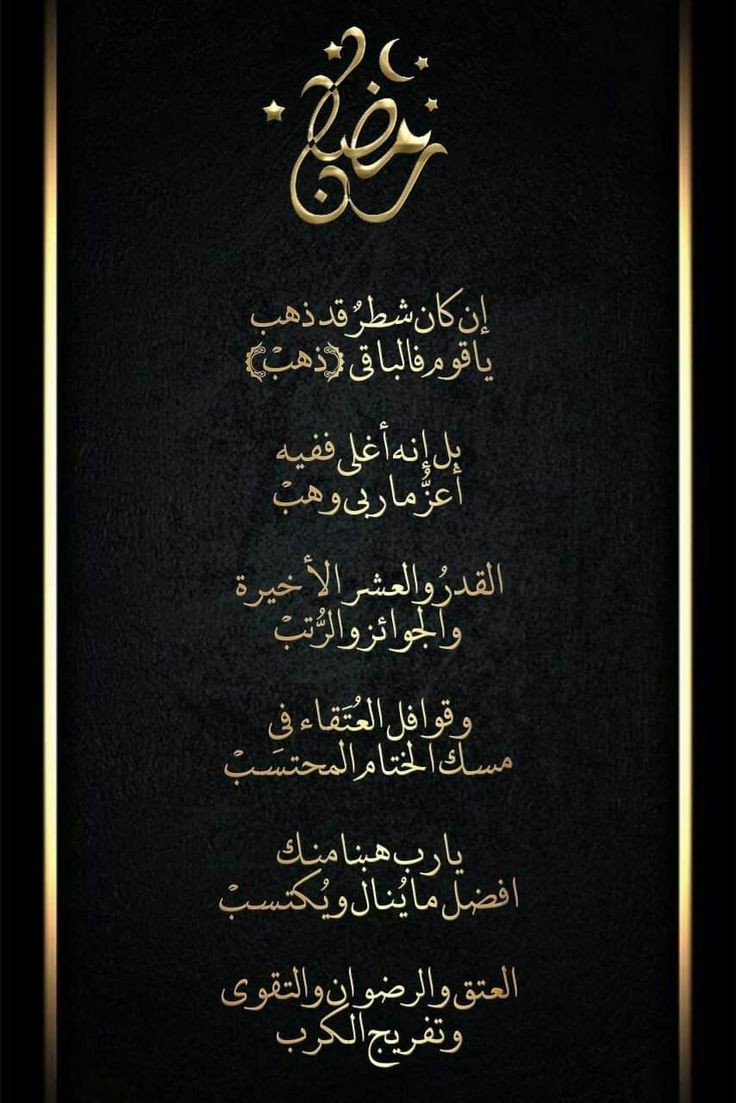 رمضان
إن كان شطرٌ قد ذهب
ياقوم فالباقى ﴿ذهبْ﴾
بل إنه أغلى ففيه
أعزُّ ما ربى وهبْ
القدرُ والعشر الأخيرة
والجوائز والرُّتبْ
وقوافل العُتَقاء فى
مسك الختام المحتسَبْ
يارب هبنا منك
افضل ما يُنال ويُكتسبْ
العتق والرضوان والتقوى
وتفريج الكرب